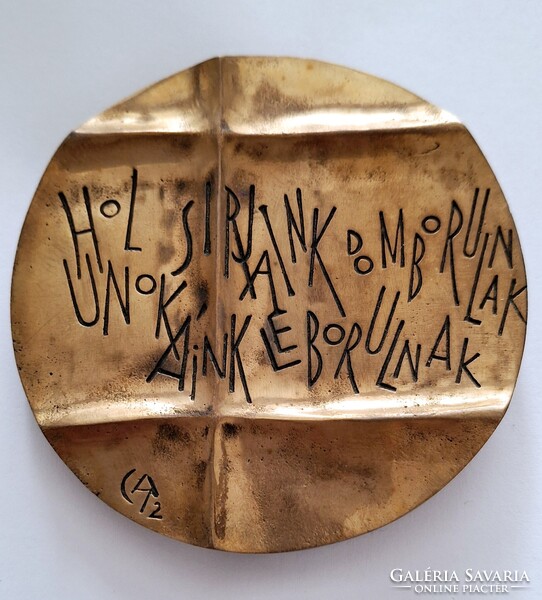 HOL SIRJAINK DOMBORULNAK
UNOKÁINK LEBORULNAK
GALÉRIA SAVARIA
ONLINE PIACTÉR